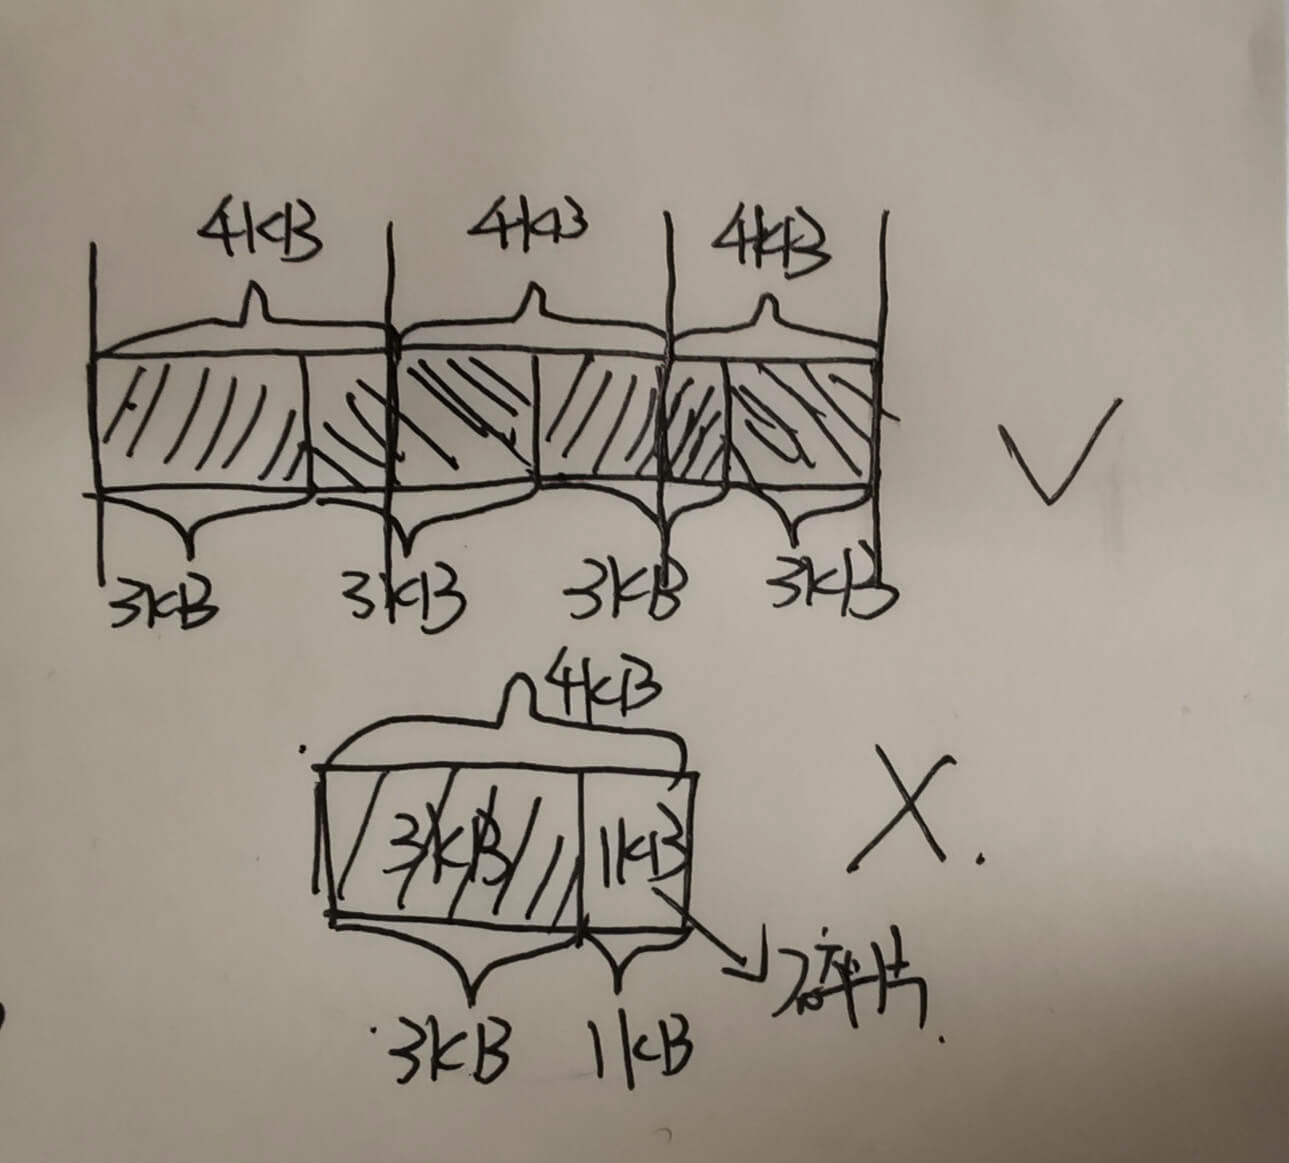 4KB 4KB 4KB
3KB 3KB 3KB 3KB
4KB
3KB 1KB
碎片
3KB 1KB